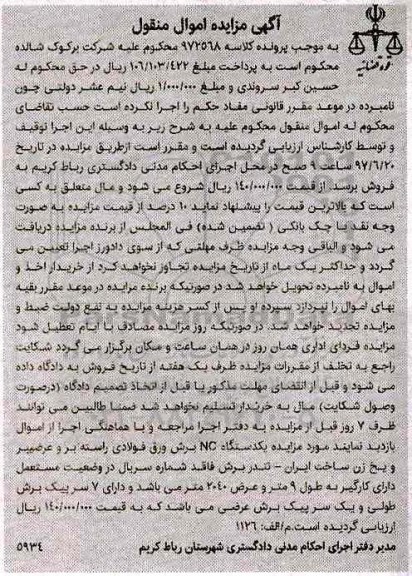 آگهی مزایده اموال منقول
به موجب پرونده کلاسه ۹۷۲۵۶۸ محکوم علیه شرکت برکوک شالده
محکوم است به پرداخت مبلغ ۱۰۶/۱۰۳/۴۲۲ ریال در حق محکوم له
حسین کبر سروندی و مبلغ ۱/۰۰۰/۰۰۰ ریال نیم عشر دولتی چون
نامبرده در موعد مقرر قانونی مفاد حکم را اجرا نکرده است حسب تقاضای
محکوم له اموال منقول محکوم علیه به شرح زیر به وسیله این اجرا توقیف
و توسط کارشناس ارزیابی گردیده است و مقرر است ازطریق مزایده در تاریخ
۹۷/۶/۲۰ ساعت ۹ صبح در محل اجرای احکام مدنی دادگستری رباط کریم به
فروش برسد. از قیمت ۱۴۰/۰۰۰/۰۰۰ ریال شروع می شود و مال متعلق به کسی
است که بالاترین قیمت را پیشنهاد نماید ۱۰ درصد از قیمت مزایده به صورت
وجه نقد یا چک بانکی ( تضمین شده) فی المجلس از برنده مزایده دریافت
می شود و الباقی وجه مزایده ظرف مهلتی که از سوی دادورز اجرا تعیین می
گردد و حداکثر یک ماه از تاریخ مزایده تجاوز نخواهد کرد از خریدار اخذ و
اموال به نامبرده تحویل خواهد شد در صورتیکه برنده مزایده در موعد مقرر بقیه
بهای اموال را نپردازد سپرده او پس از کسر هزینه مزایده به نفع دولت ضبط و
مزایده تجدید خواهد شد. در صورتیکه روز مزایده مصادف با ایام تعطیل شود
مزایده فردای اداری همان روز در همان ساعت و مکان برگزار می گردد شکایت
راجع به تخلف از مقررات مزایده ظرف یک هفته از تاریخ فروش به دادگاه داده
می شود و قبل از انقضای مهلت مذکور یا قبل از اتخاذ تصمیم دادگاه (درصورت
وصول شکایت) مال به خریدار تسلیم نخواهد شد ضمنا طالبین می توانند
ظرف ۷ روز قبل از مزایده به دفتر اجرا مراجعه و با هماهنگی اجرا از اموال
بازدید نمایند مورد مزایده یکدستگاه NC برش ورق فولادی راسته بر و عرضبر
و پخ زن ساخت ایران – تندر برش فاقد شماره سریال در وضعیت مستعمل
دارای کارگیر به طول ۹ متر و عرض ۲۰۴۰ متر می باشد و دارای ۷ سر پیک برش
طولی و یک سر پیک برش عرضی می باشد که به قیمت ۱۴۰/۰۰۰/۰۰۰ ریال
ارزیابی گردیده است.م/الف: ۱۱۲۶
مدیر دفتر اجرای احکام مدنی دادگستری شهرستان رباط کریم ۵۹۳۴